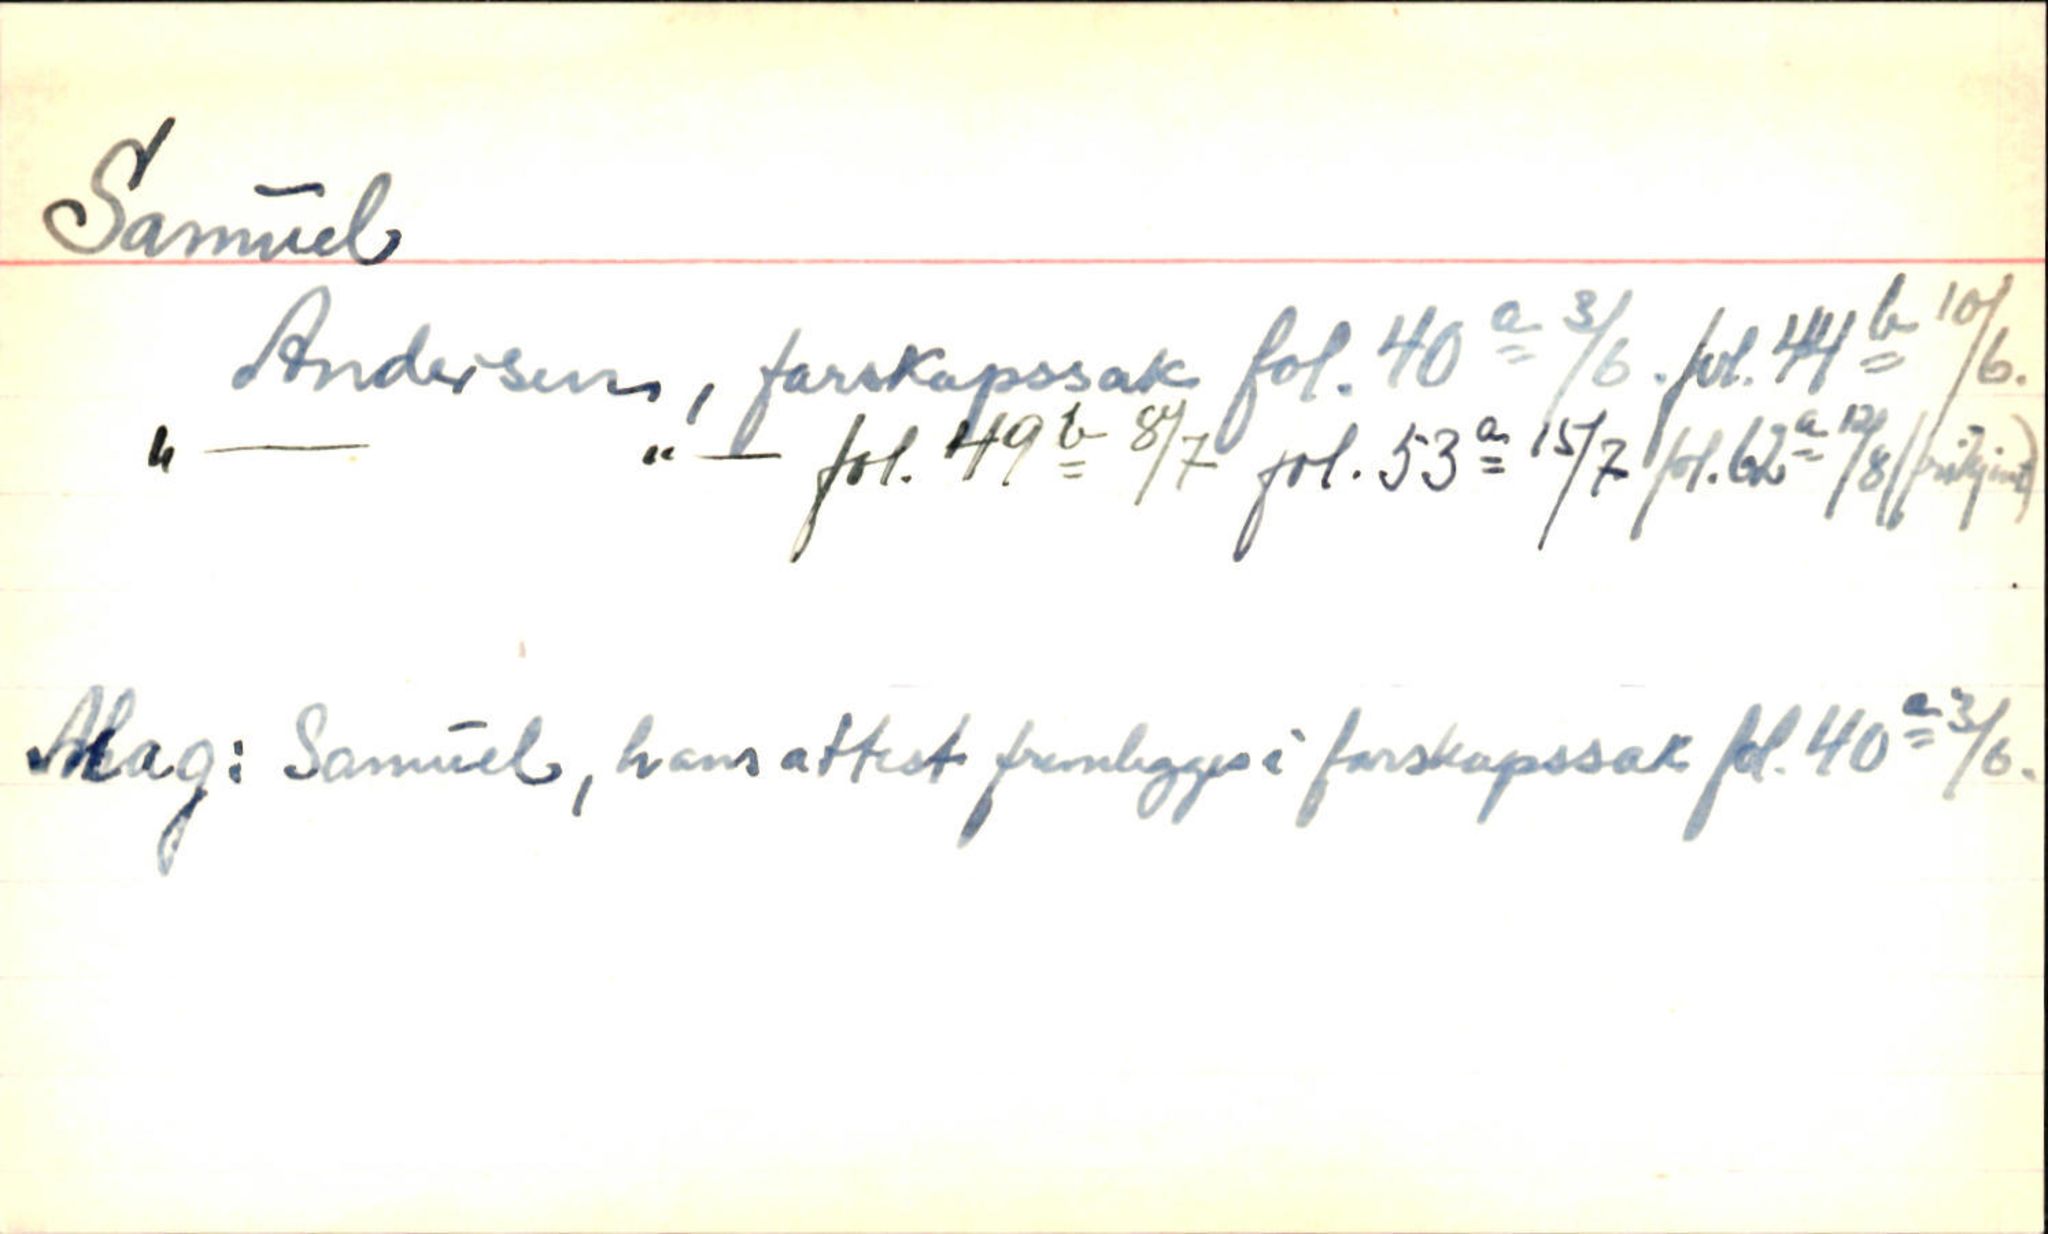 Samuel
Andersen, farskapssak fol. 40 a 3/6. fol. 44 b 10/6.
" — " — fol. 49 b 8/7 fol. 53 a 15/7 fol. 62 a 12/8 (frikjent)
Mag: Samuel, hans attest fremlegges i farskapssak fol. 40 a 3/6.